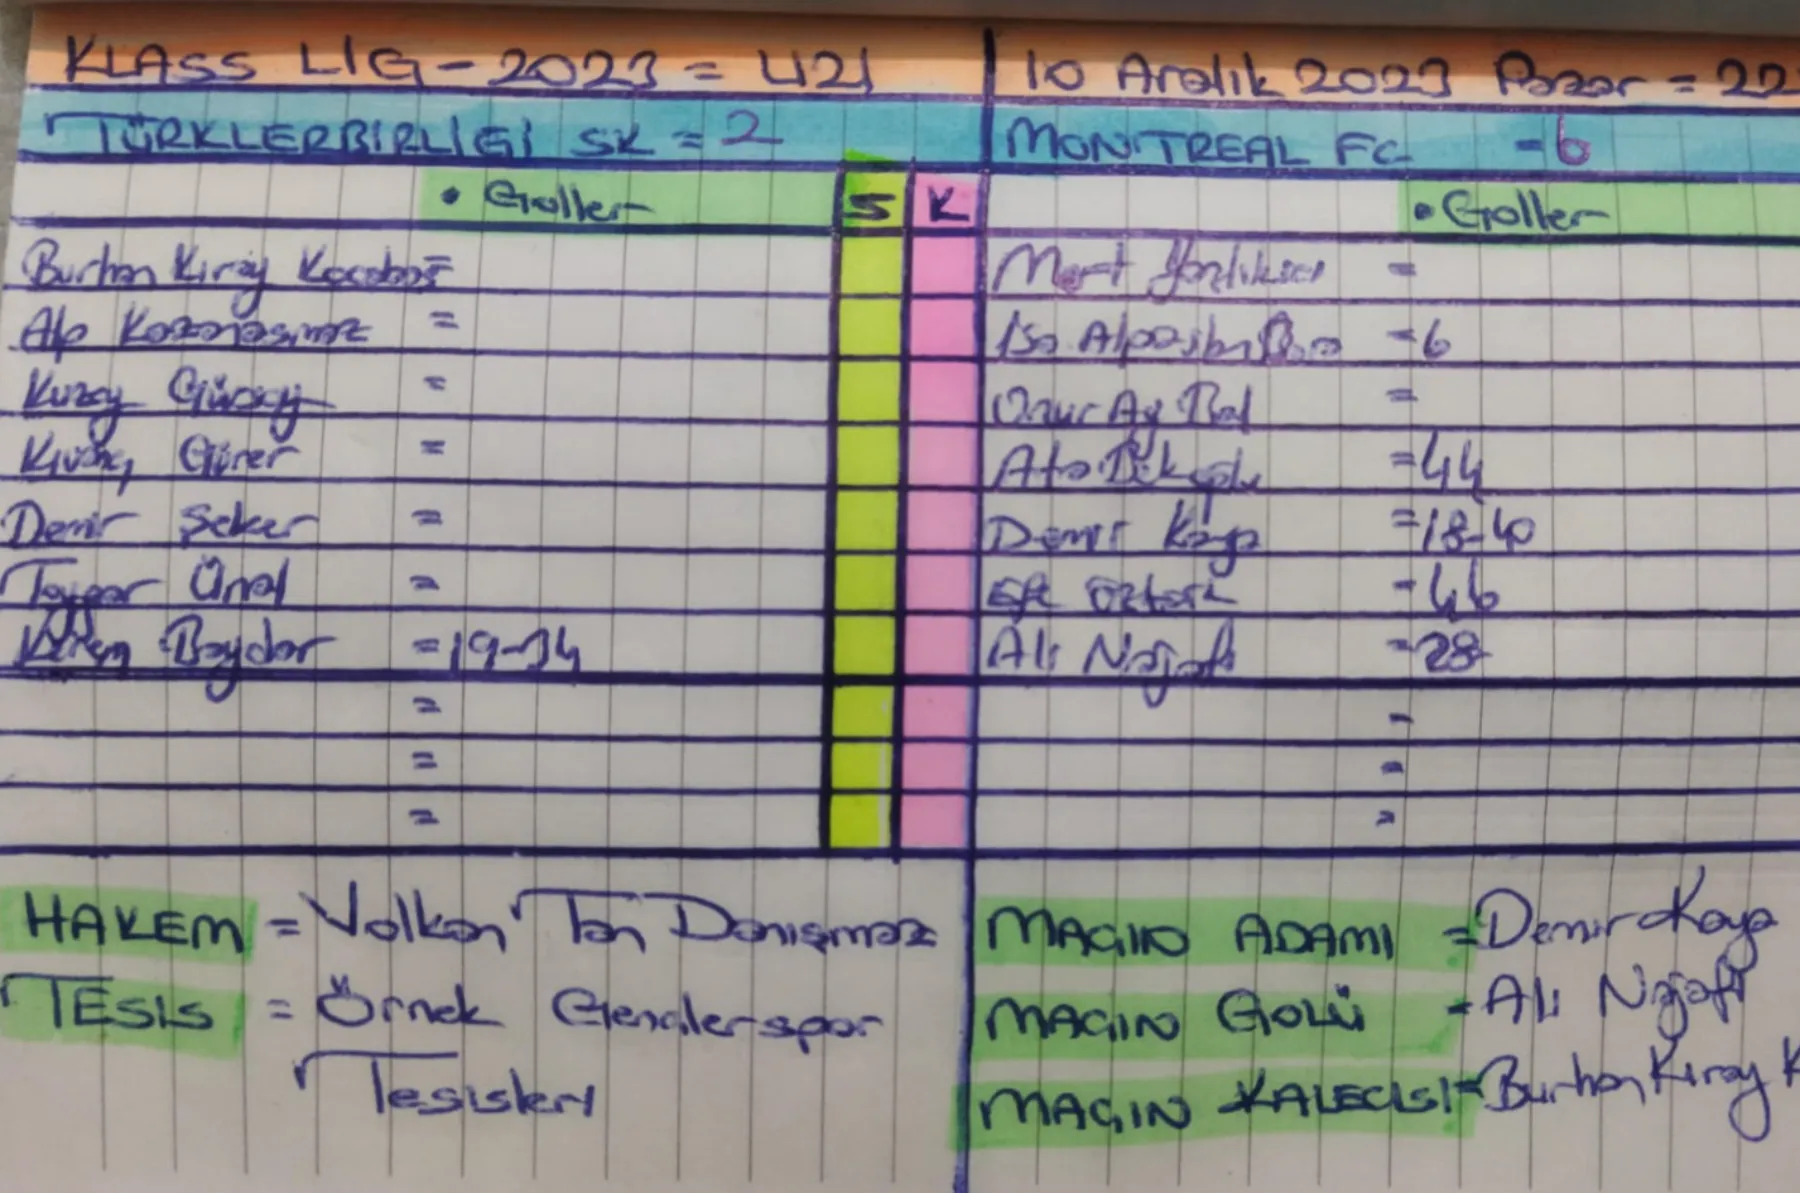 KLASS LİG - 2023 = 421
10 Aralık 2023 Pazar = 22
TÜRKLERBİRLİĞİ SK = 2
MONTREAL FC = 6
• Goller S K
• Goller
Burhan Kıray Kocabaş =
Mert =
Alp Kazanasmaz =
İsa Alpaslan = 6
Kuzey Gürsoy =
Onur Ay Bal =
Kıvanç Gürer =
Ata = 44
Demir Şeker =
Demir Kaya = 18-40
Taypar Ünal =
Efe Öztürk = 46
Kerem Baydar = 19-34
Ali Najafi = 28
=
-
=
=
=
=
HAKEM = Volkan Tan Danışmaz
TESİS = Örnek Gençlerspor
Tesisleri
MAÇIN ADAMI = Demir Kaya
MAÇIN GOLÜ = Ali Najafi
MAÇIN KALECİSİ = Burhan Kıray K